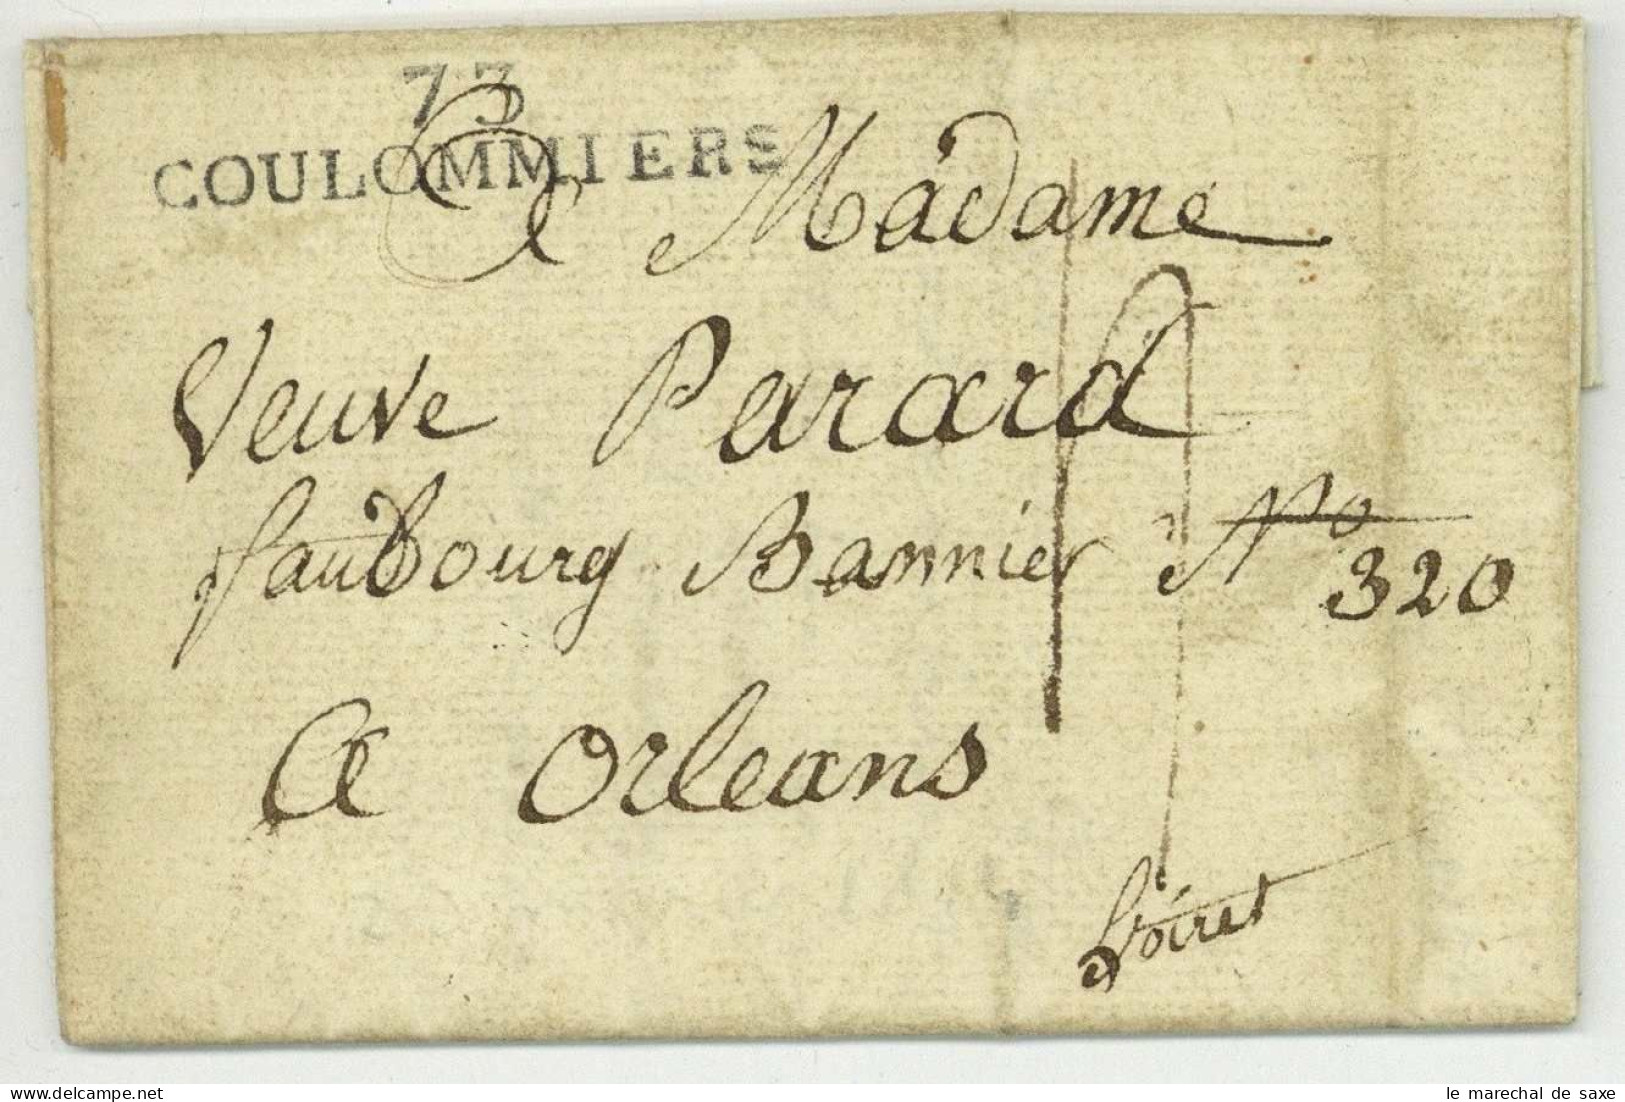 73
COULOMMIERS
A Madame
Veuve Parard
faubourg Bannier No
320
A Orleans
Loiret
le marechal de saxe